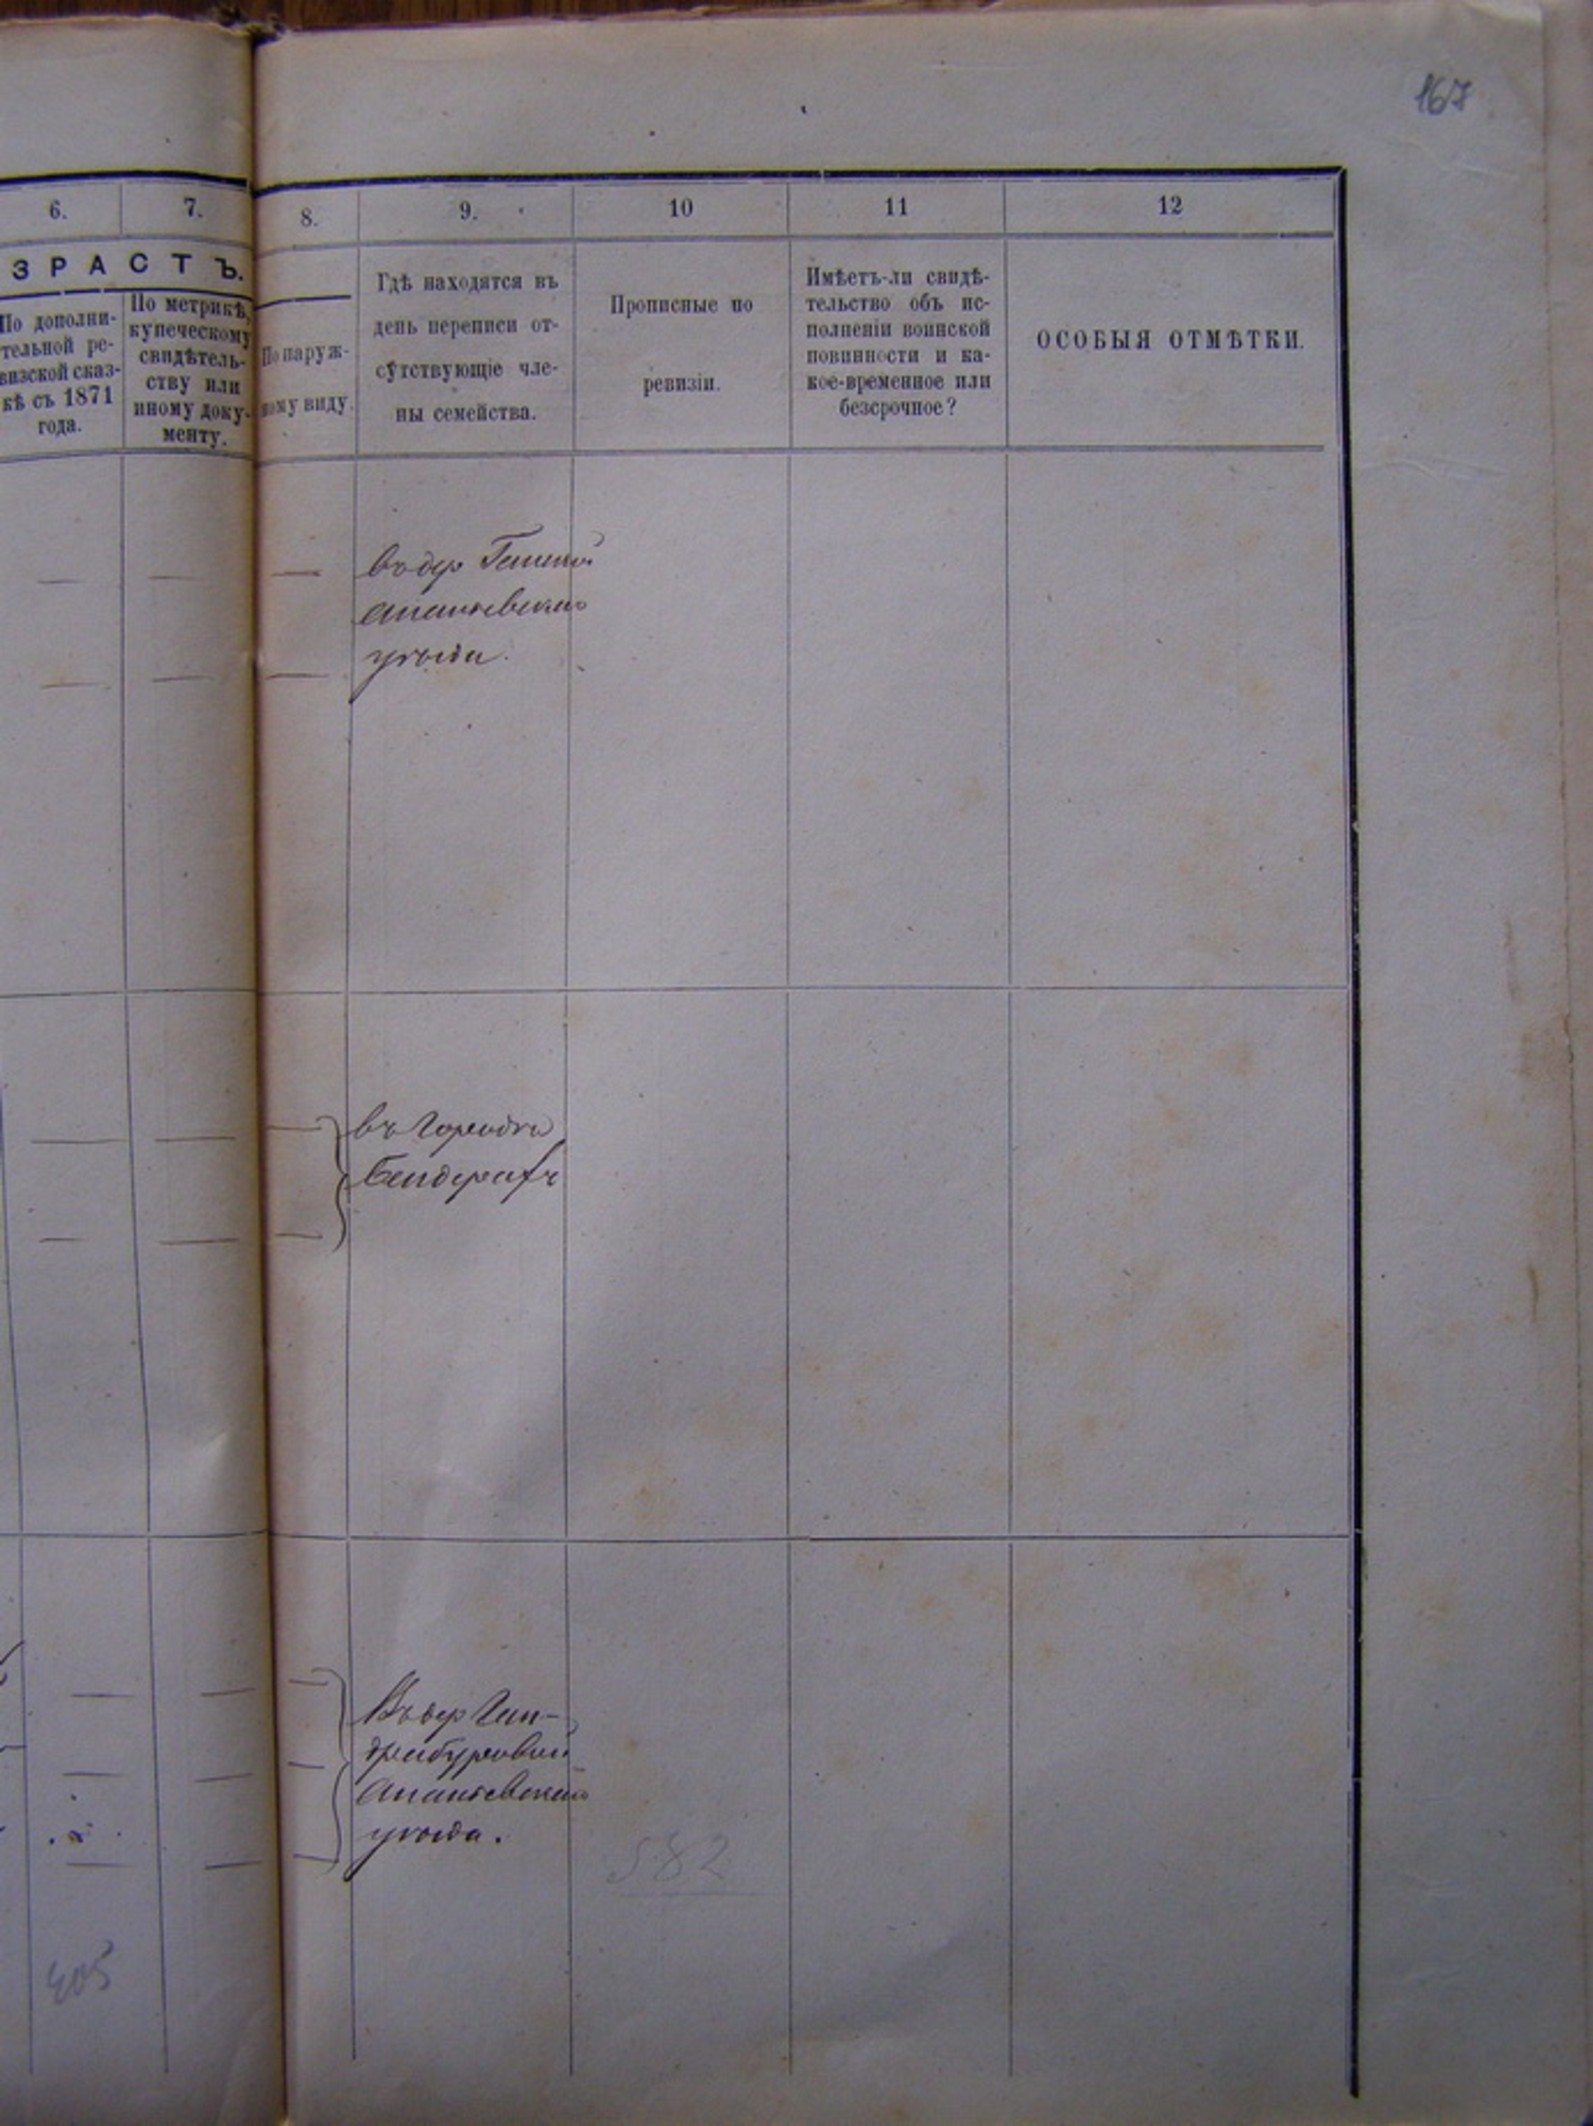 167
6.
7.
8.
9.
10
11
12
ЗРАСТЪ.
По дополни-
тельной ре-
визской сказ-
кѣ съ 1871
года.
По метрикѣ,
купеческому
свидѣтель-
ству или
иному доку-
менту.
По наруж-
ному виду.
Гдѣ находятся въ
день переписи от-
сутствующіе чле-
ны семейства.
Прописные по
ревизіи.
Имѣетъ-ли свидѣ-
тельство объ ис-
полненіи воинской
повинности и ка-
кое-временное или
безсрочное?
ОСОБЫЯ ОТМѢТКИ.
въ дер
Ананьевскаго
уѣзда.
въ городѣ
Бендерахъ
Въ дер Ган-
драбуровой
Ананьевскаго
уѣзда.
582
405